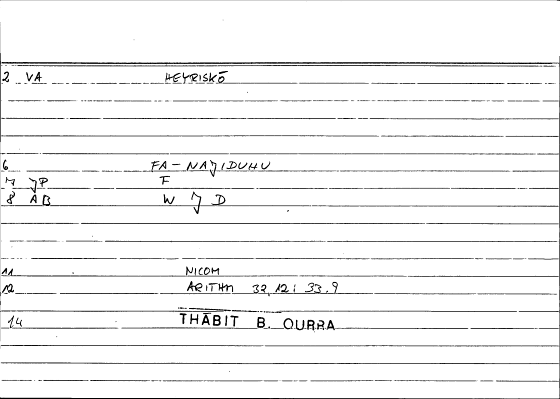 2 VA HEYRISKŌ
6 FA-NAJIDUHU
7 JP F
8 AB W J D
11 NICOM
12 ARITHM 32,12; 33.9
14 THĀBIT B. QURRA